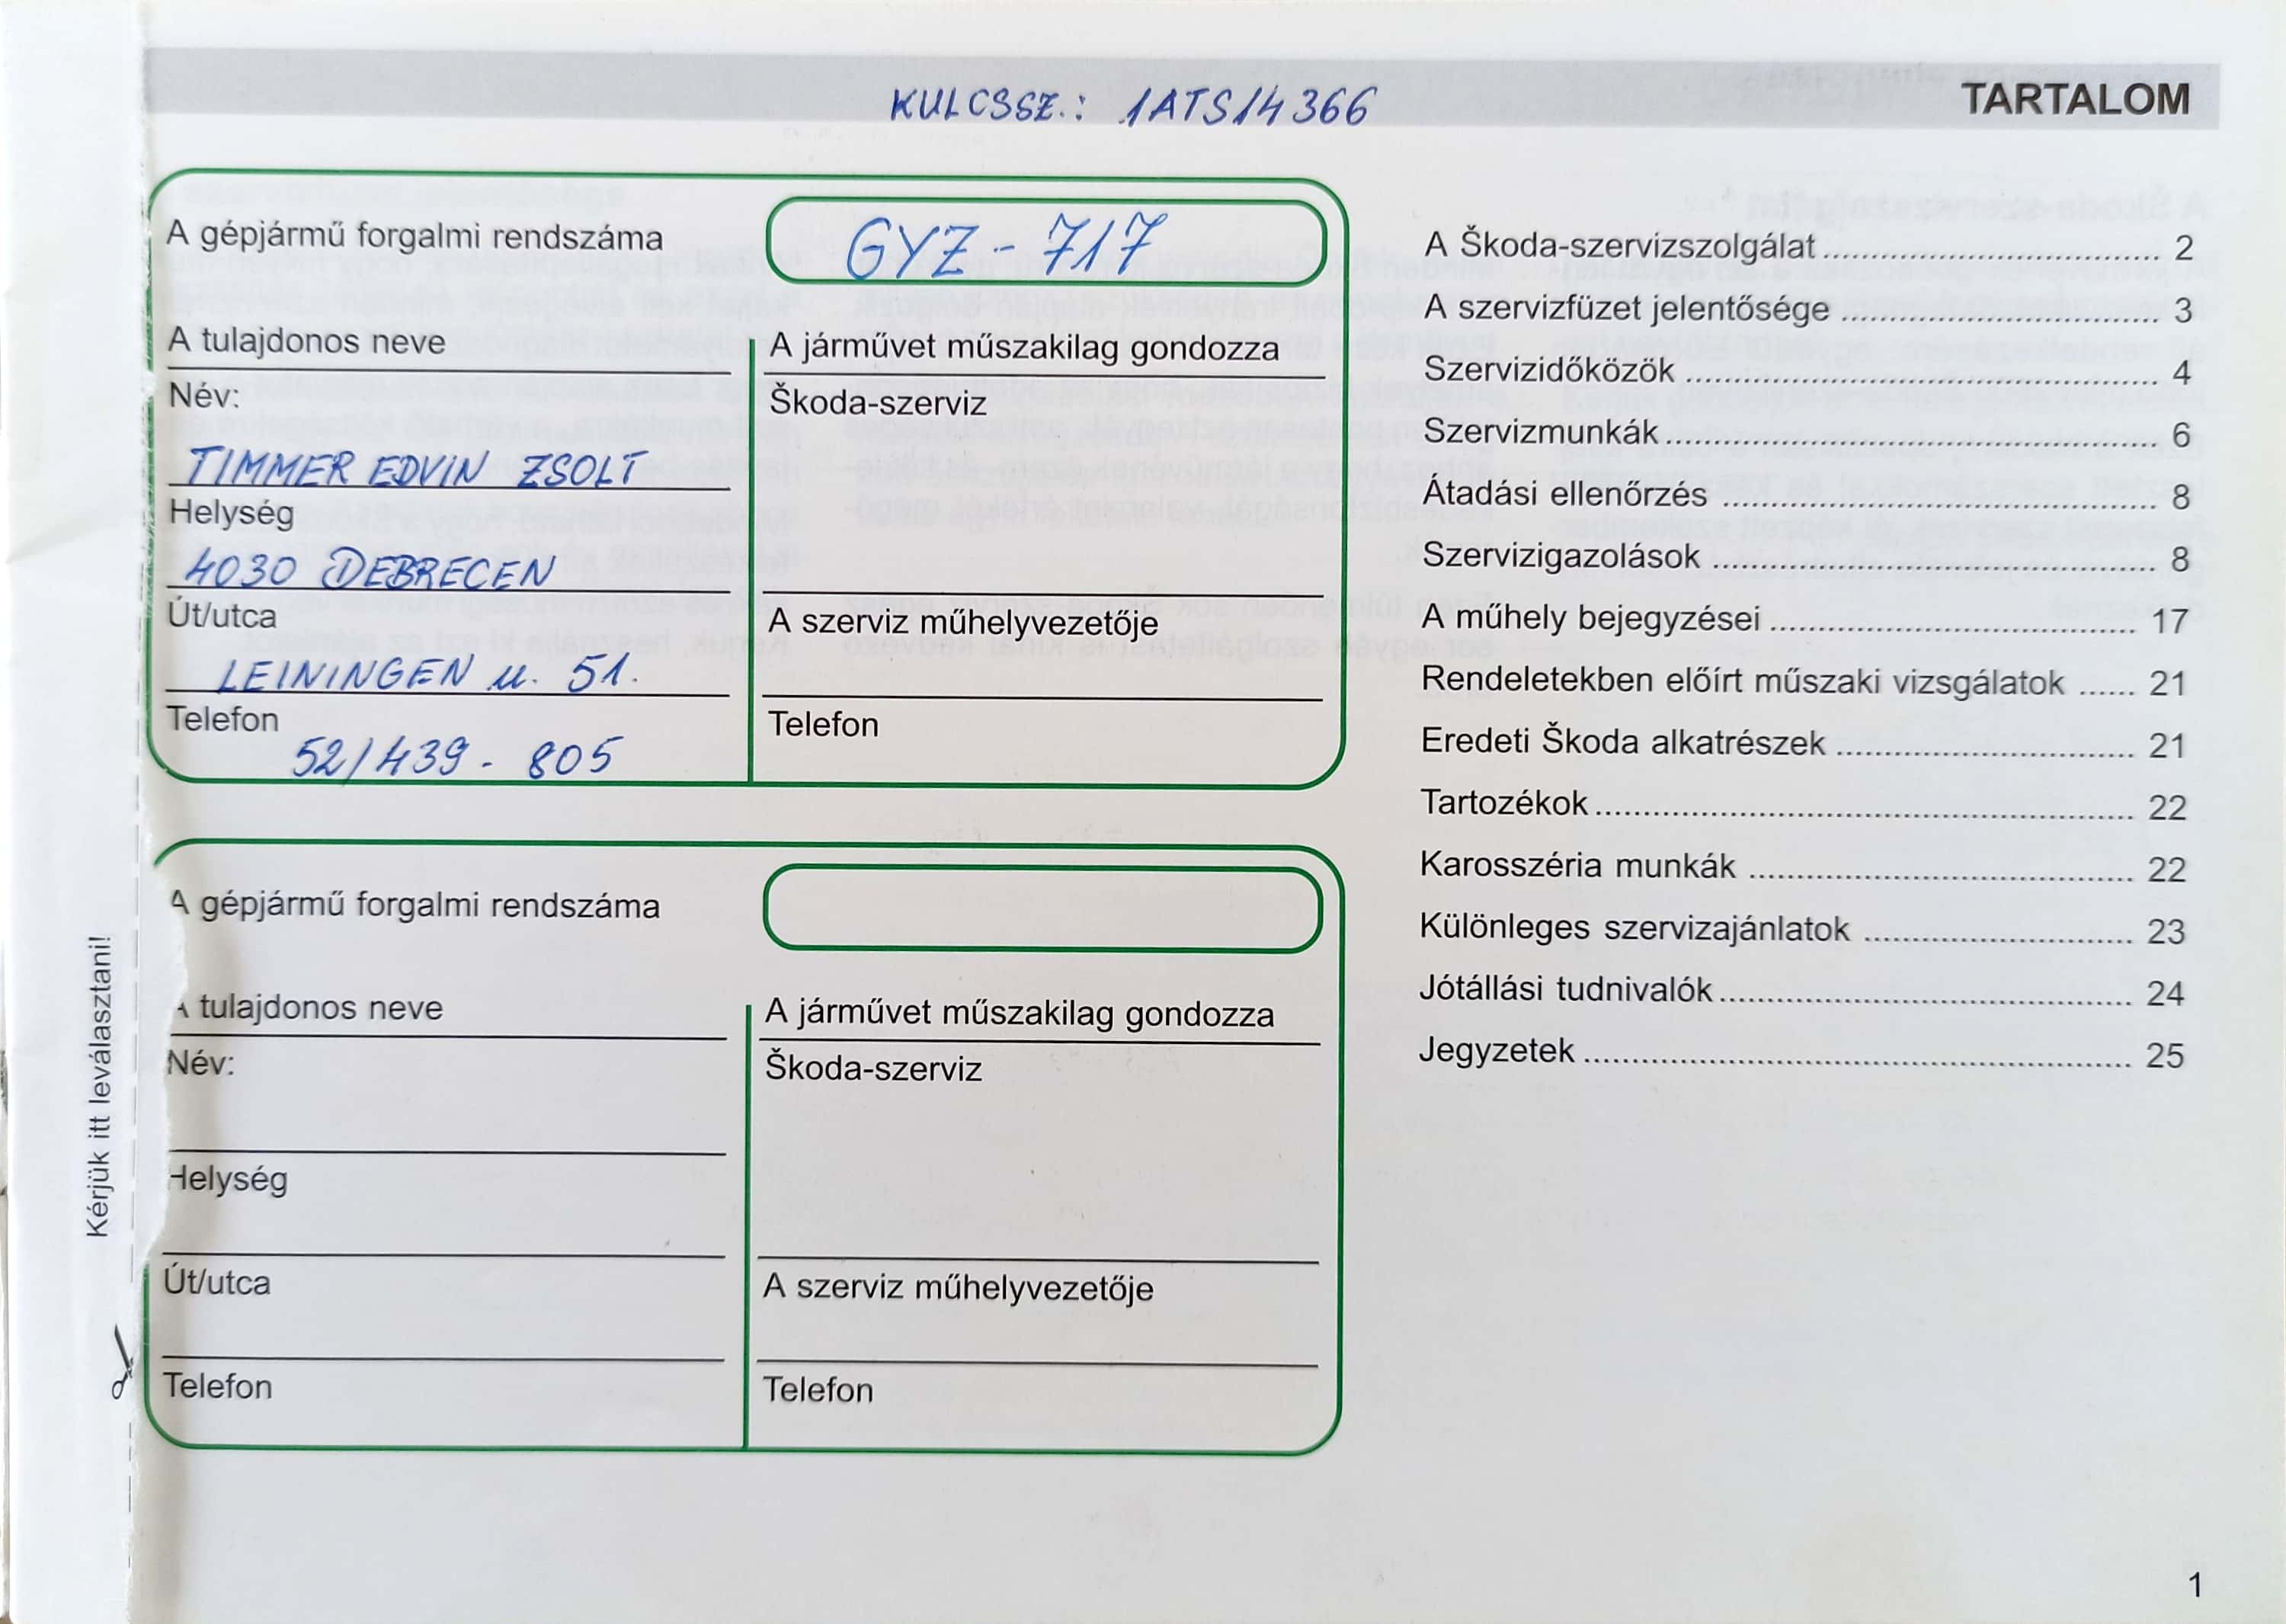 KULCSSZ.: 1ATS14366
TARTALOM
A gépjármű forgalmi rendszáma
GYZ-717
A tulajdonos neve
Név:
TIMMER EDVIN ZSOLT
Helység
4030 DEBRECEN
Út/utca
LEININGEN u. 51.
Telefon
52/439-805
A járművet műszakilag gondozza
Škoda-szerviz
A szerviz műhelyvezetője
Telefon
A gépjármű forgalmi rendszáma
A tulajdonos neve
Név:
Helység
Út/utca
Telefon
A járművet műszakilag gondozza
Škoda-szerviz
A szerviz műhelyvezetője
Telefon
Kérjük itt leválasztani!
A Škoda-szervizszolgálat ........ 2
A szervizfüzet jelentősége ........ 3
Szervizidőközök ........ 4
Szervizmunkák ........ 6
Átadási ellenőrzés ........ 8
Szervizigazolások ........ 8
A műhely bejegyzései ........ 17
Rendeletekben előírt műszaki vizsgálatok ...... 21
Eredeti Škoda alkatrészek ........ 21
Tartozékok ........ 22
Karosszéria munkák ........ 22
Különleges szervizajánlatok ........ 23
Jótállási tudnivalók ........ 24
Jegyzetek ........ 25
1